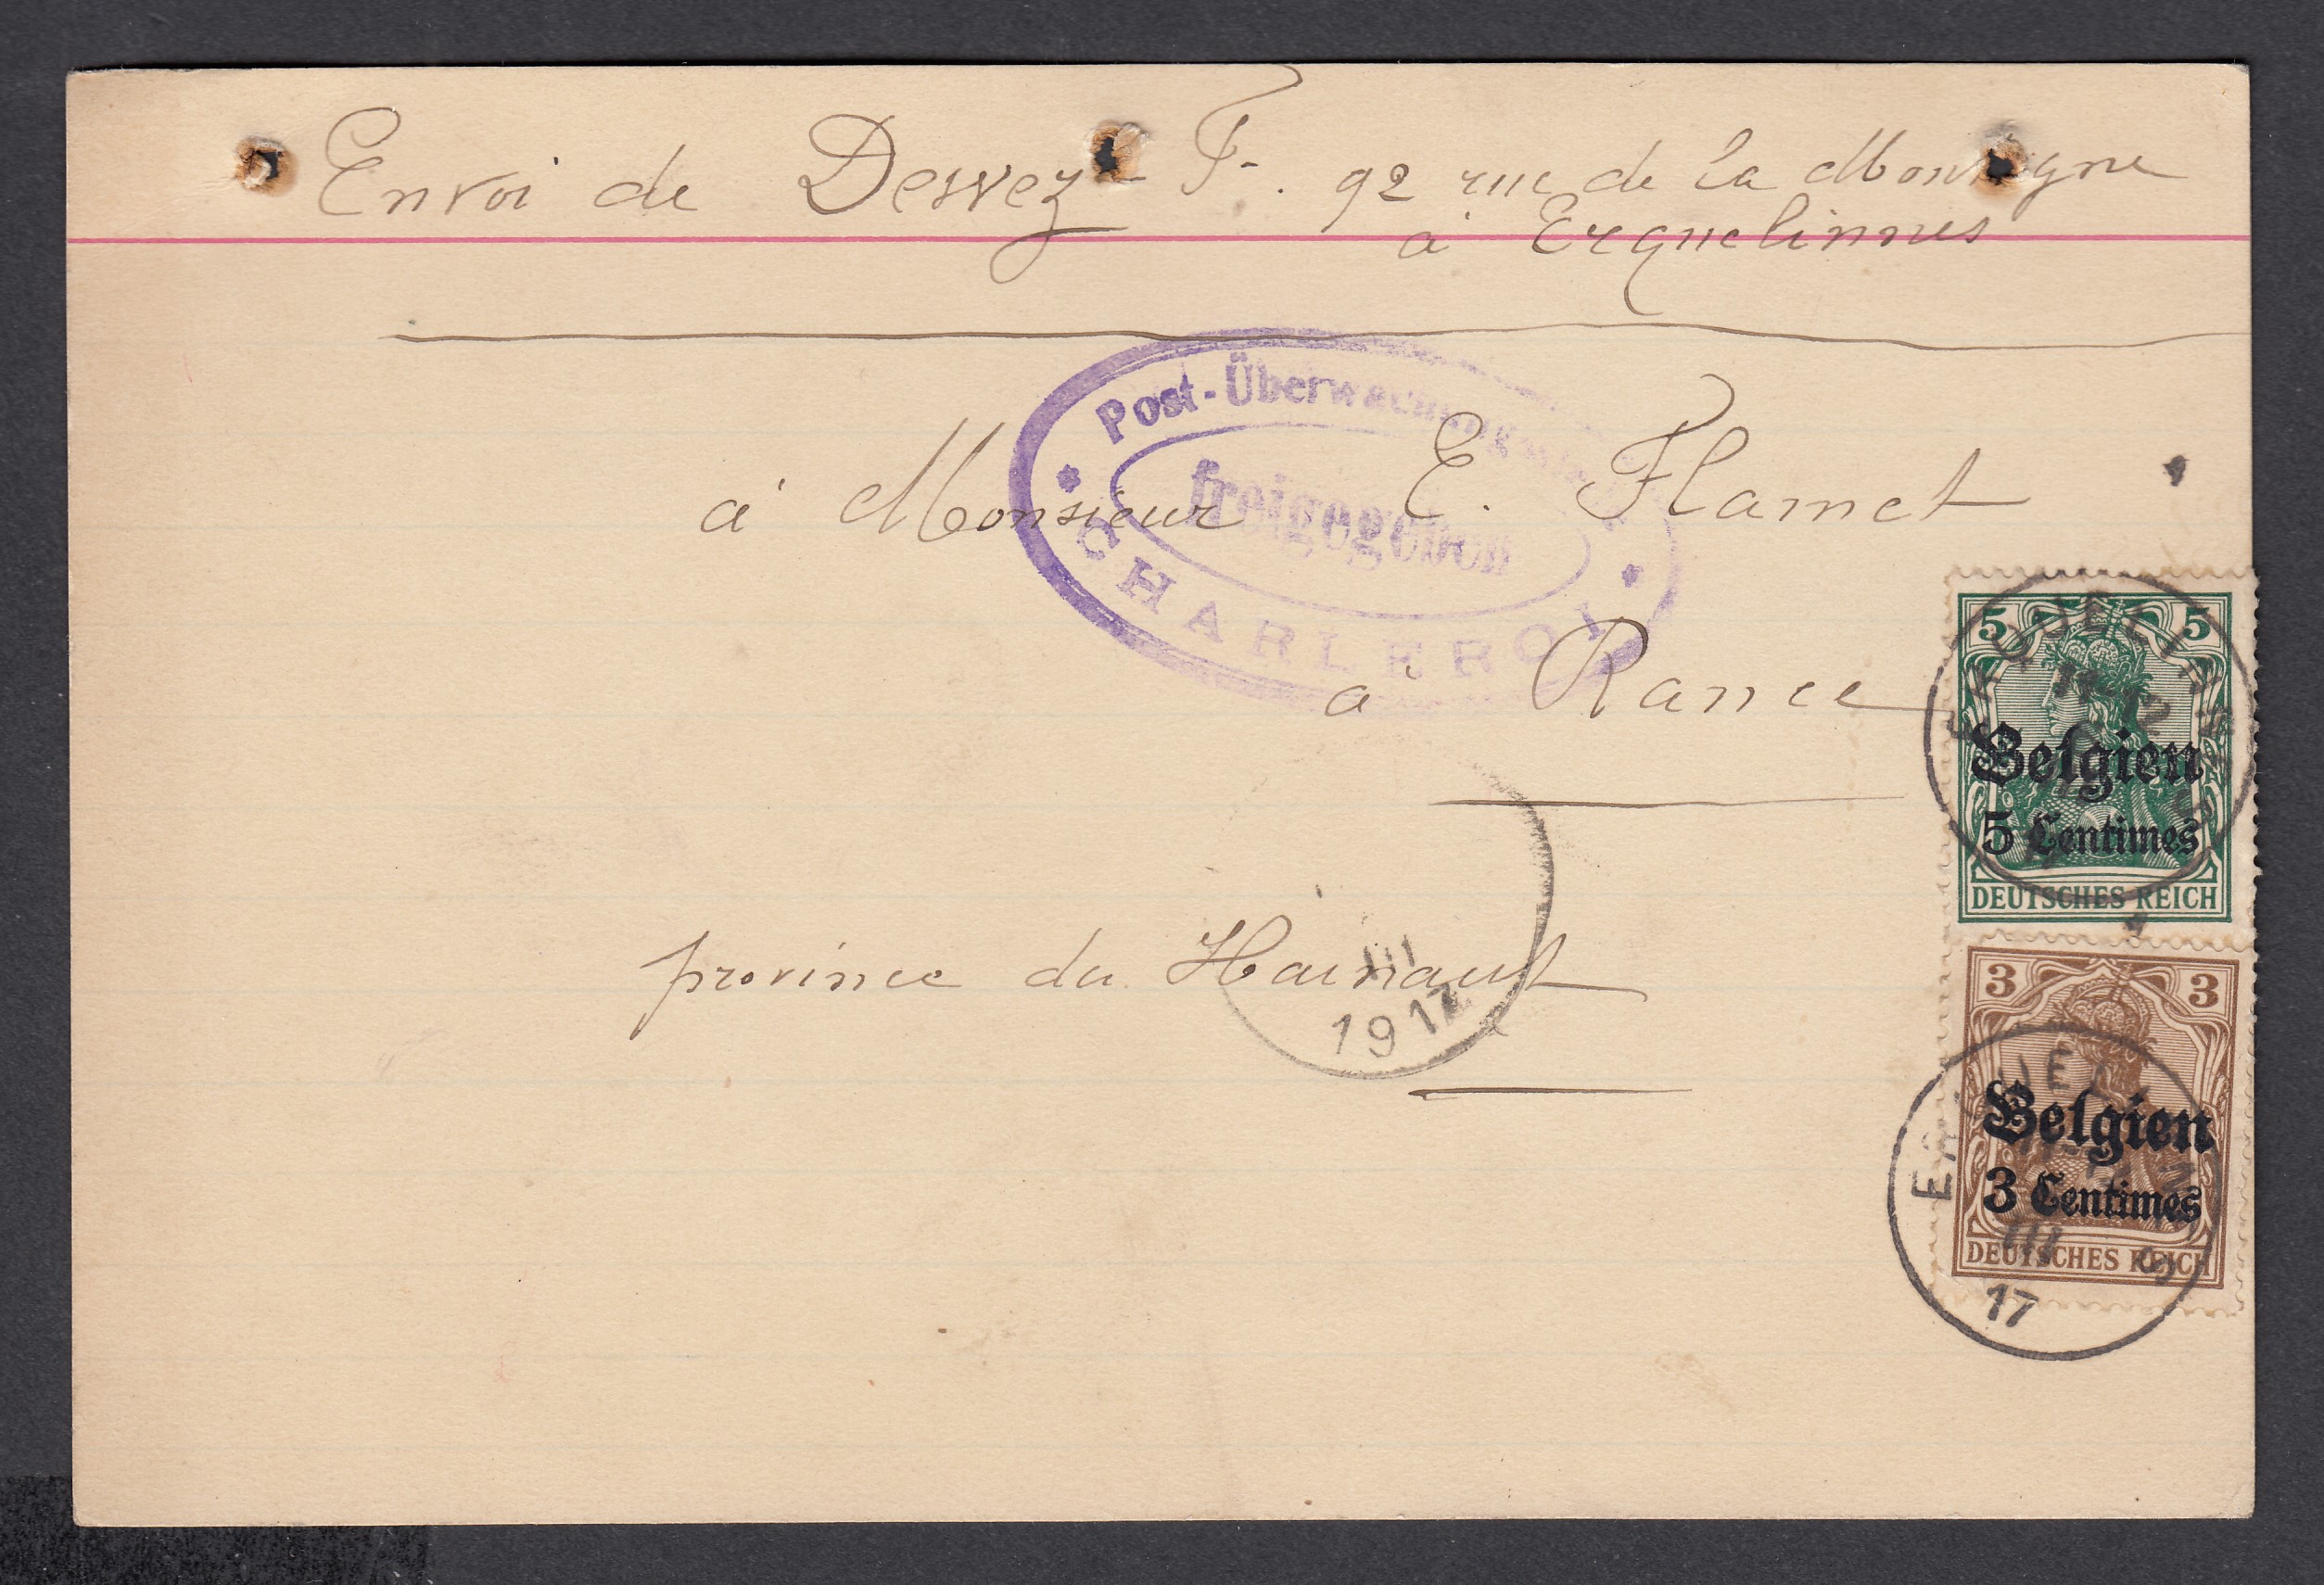 Envoi de Dervez - F. 92 rue de la Montagne
à Erquelinnes
Post-Überwachungsstelle
freigegeben
CHARLEROI
à Monsieur E. Flamet
à Rance
province du Hainaut
III
1917
5 5
ERQUELINNES
11-12
Belgien
5 Centimes
DEUTSCHES REICH
3 3
ERQUELINNES
Belgien
3 Centimes
DEUTSCHES REICH
III
17